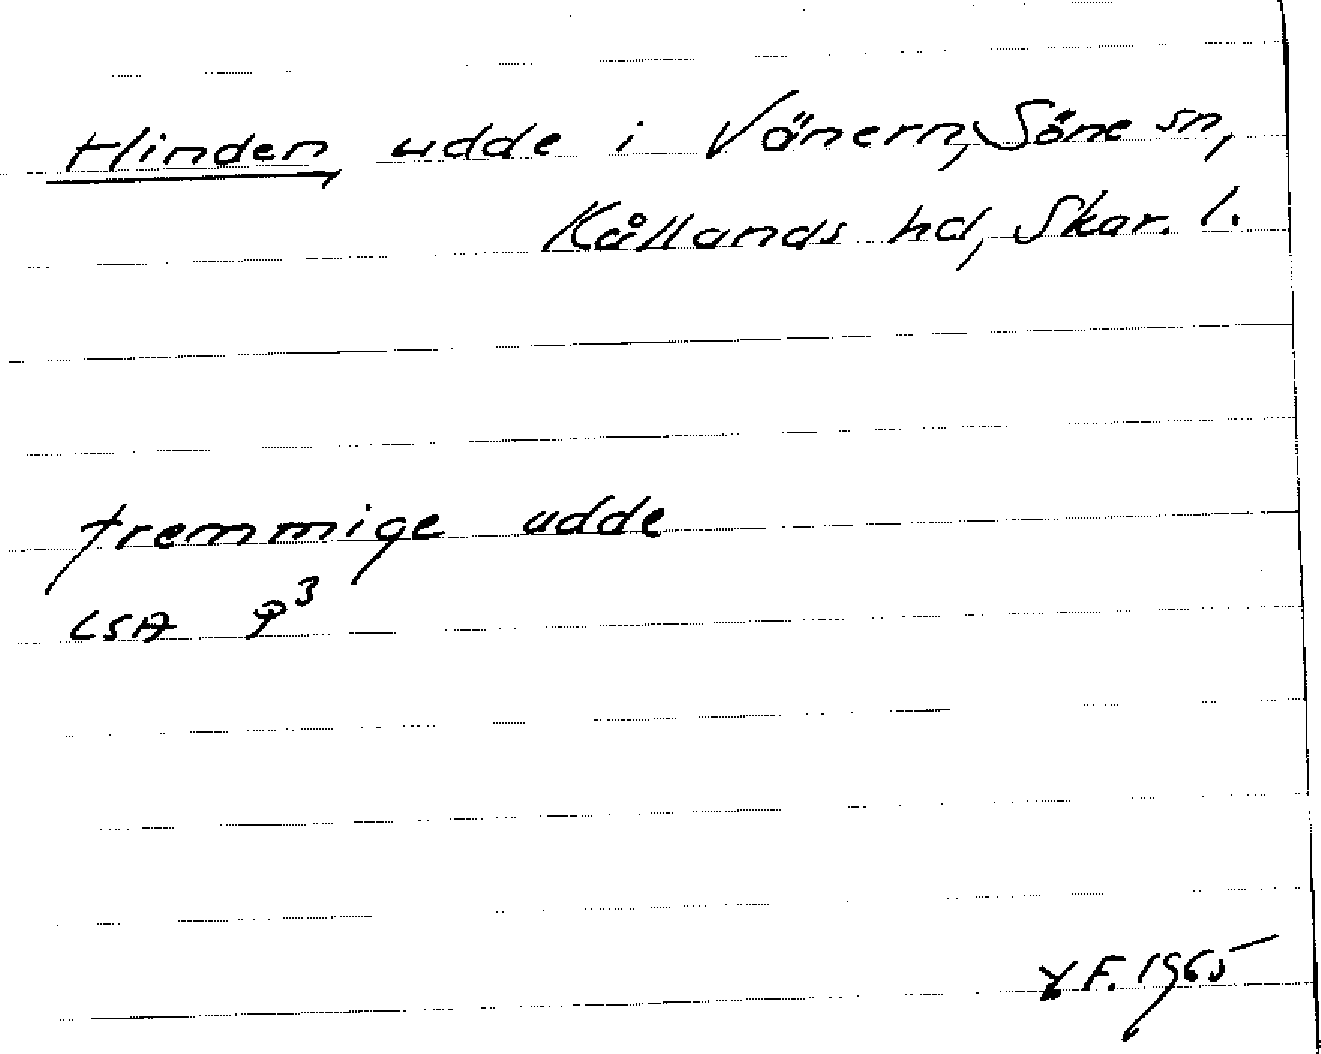 Hinden, udde i Vänern, Söne sn,
Kållands hd, Skar. l.
fremmige udde
LSA 3
F. 1965